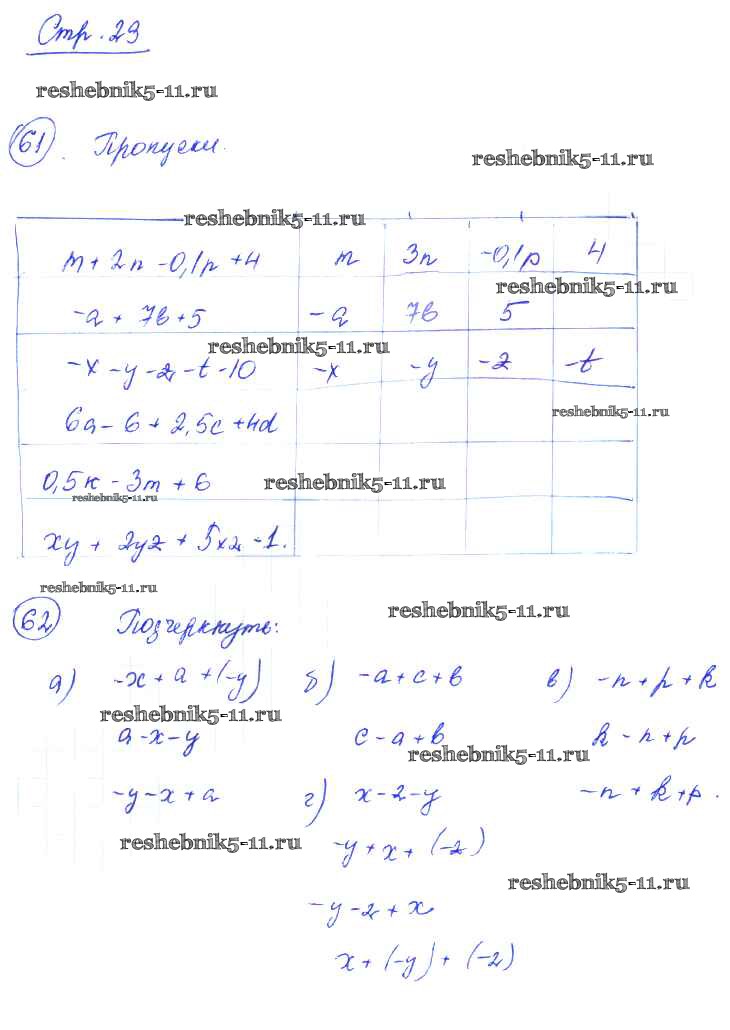 Стр. 29
reshebnik5-11.ru
61. Пропуски.
reshebnik5-11.ru
reshebnik5-11.ru
m + 2n - 0,1p + 4 m 3n -0,1p 4
reshebnik5-11.ru
-a + 7b + 5 -a 7b 5
reshebnik5-11.ru
-x - y - z - t - 10 -x -y -z -t
reshebnik5-11.ru
6a - 6 + 2,5c + 4d
0,5k - 3m + 6
reshebnik5-11.ru
reshebnik5-11.ru
xy + 2yz + 5xz - 1.
reshebnik5-11.ru
reshebnik5-11.ru
62 Подчеркнуть:
а) -x + a + (-y) б) -a + c + b в) -n + p + k
reshebnik5-11.ru
a - x - y c - a + b k - n + p
reshebnik5-11.ru
-y - x + a г) x - 2 - y -n + k + p.
reshebnik5-11.ru
-y + x + (-2)
reshebnik5-11.ru
-y - 2 + x
x + (-y) + (-2)